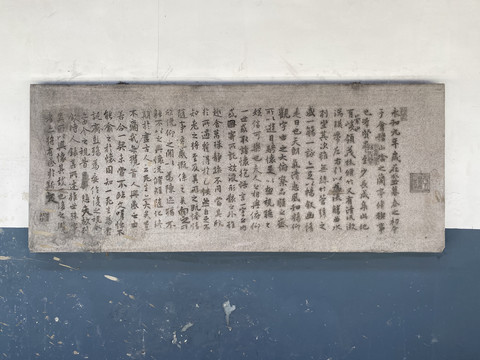 永和九年歲在癸丑暮春之初會
于會稽山陰之蘭亭脩禊事
也羣賢畢至少長咸集此地
有崇山峻領茂林脩竹又有清流激
湍暎帶左右引以為流觴曲水
列坐其次雖無絲竹管弦之
盛一觴一詠亦足以暢敘幽情
是日也天朗氣清惠風和暢仰
觀宇宙之大俯察品類之盛
所以遊目騁懷足以極視聽之
娛信可樂也夫人之相與俯仰
一世或取諸懷抱悟言一室之內
或因寄所託放浪形骸之外雖
趣舍萬殊靜躁不同當其欣
於所遇蹔得於己快然自足不
知老之將至及其所之既惓情
隨事遷感慨係之矣向之所
欣俛仰之閒以為陳迹猶不
能不以之興懷況脩短隨化終
期於盡古人云死生亦大矣豈
不痛哉每攬昔人興感之由
若合一契未嘗不臨文嗟悼不
能喻之於懷固知一死生為虛
誕齊彭殤為妄作後之視今
亦由今之視昔悲夫故列
敘時人錄其所述雖世殊事
異所以興懷其致一也後之攬
者亦將有感於斯文